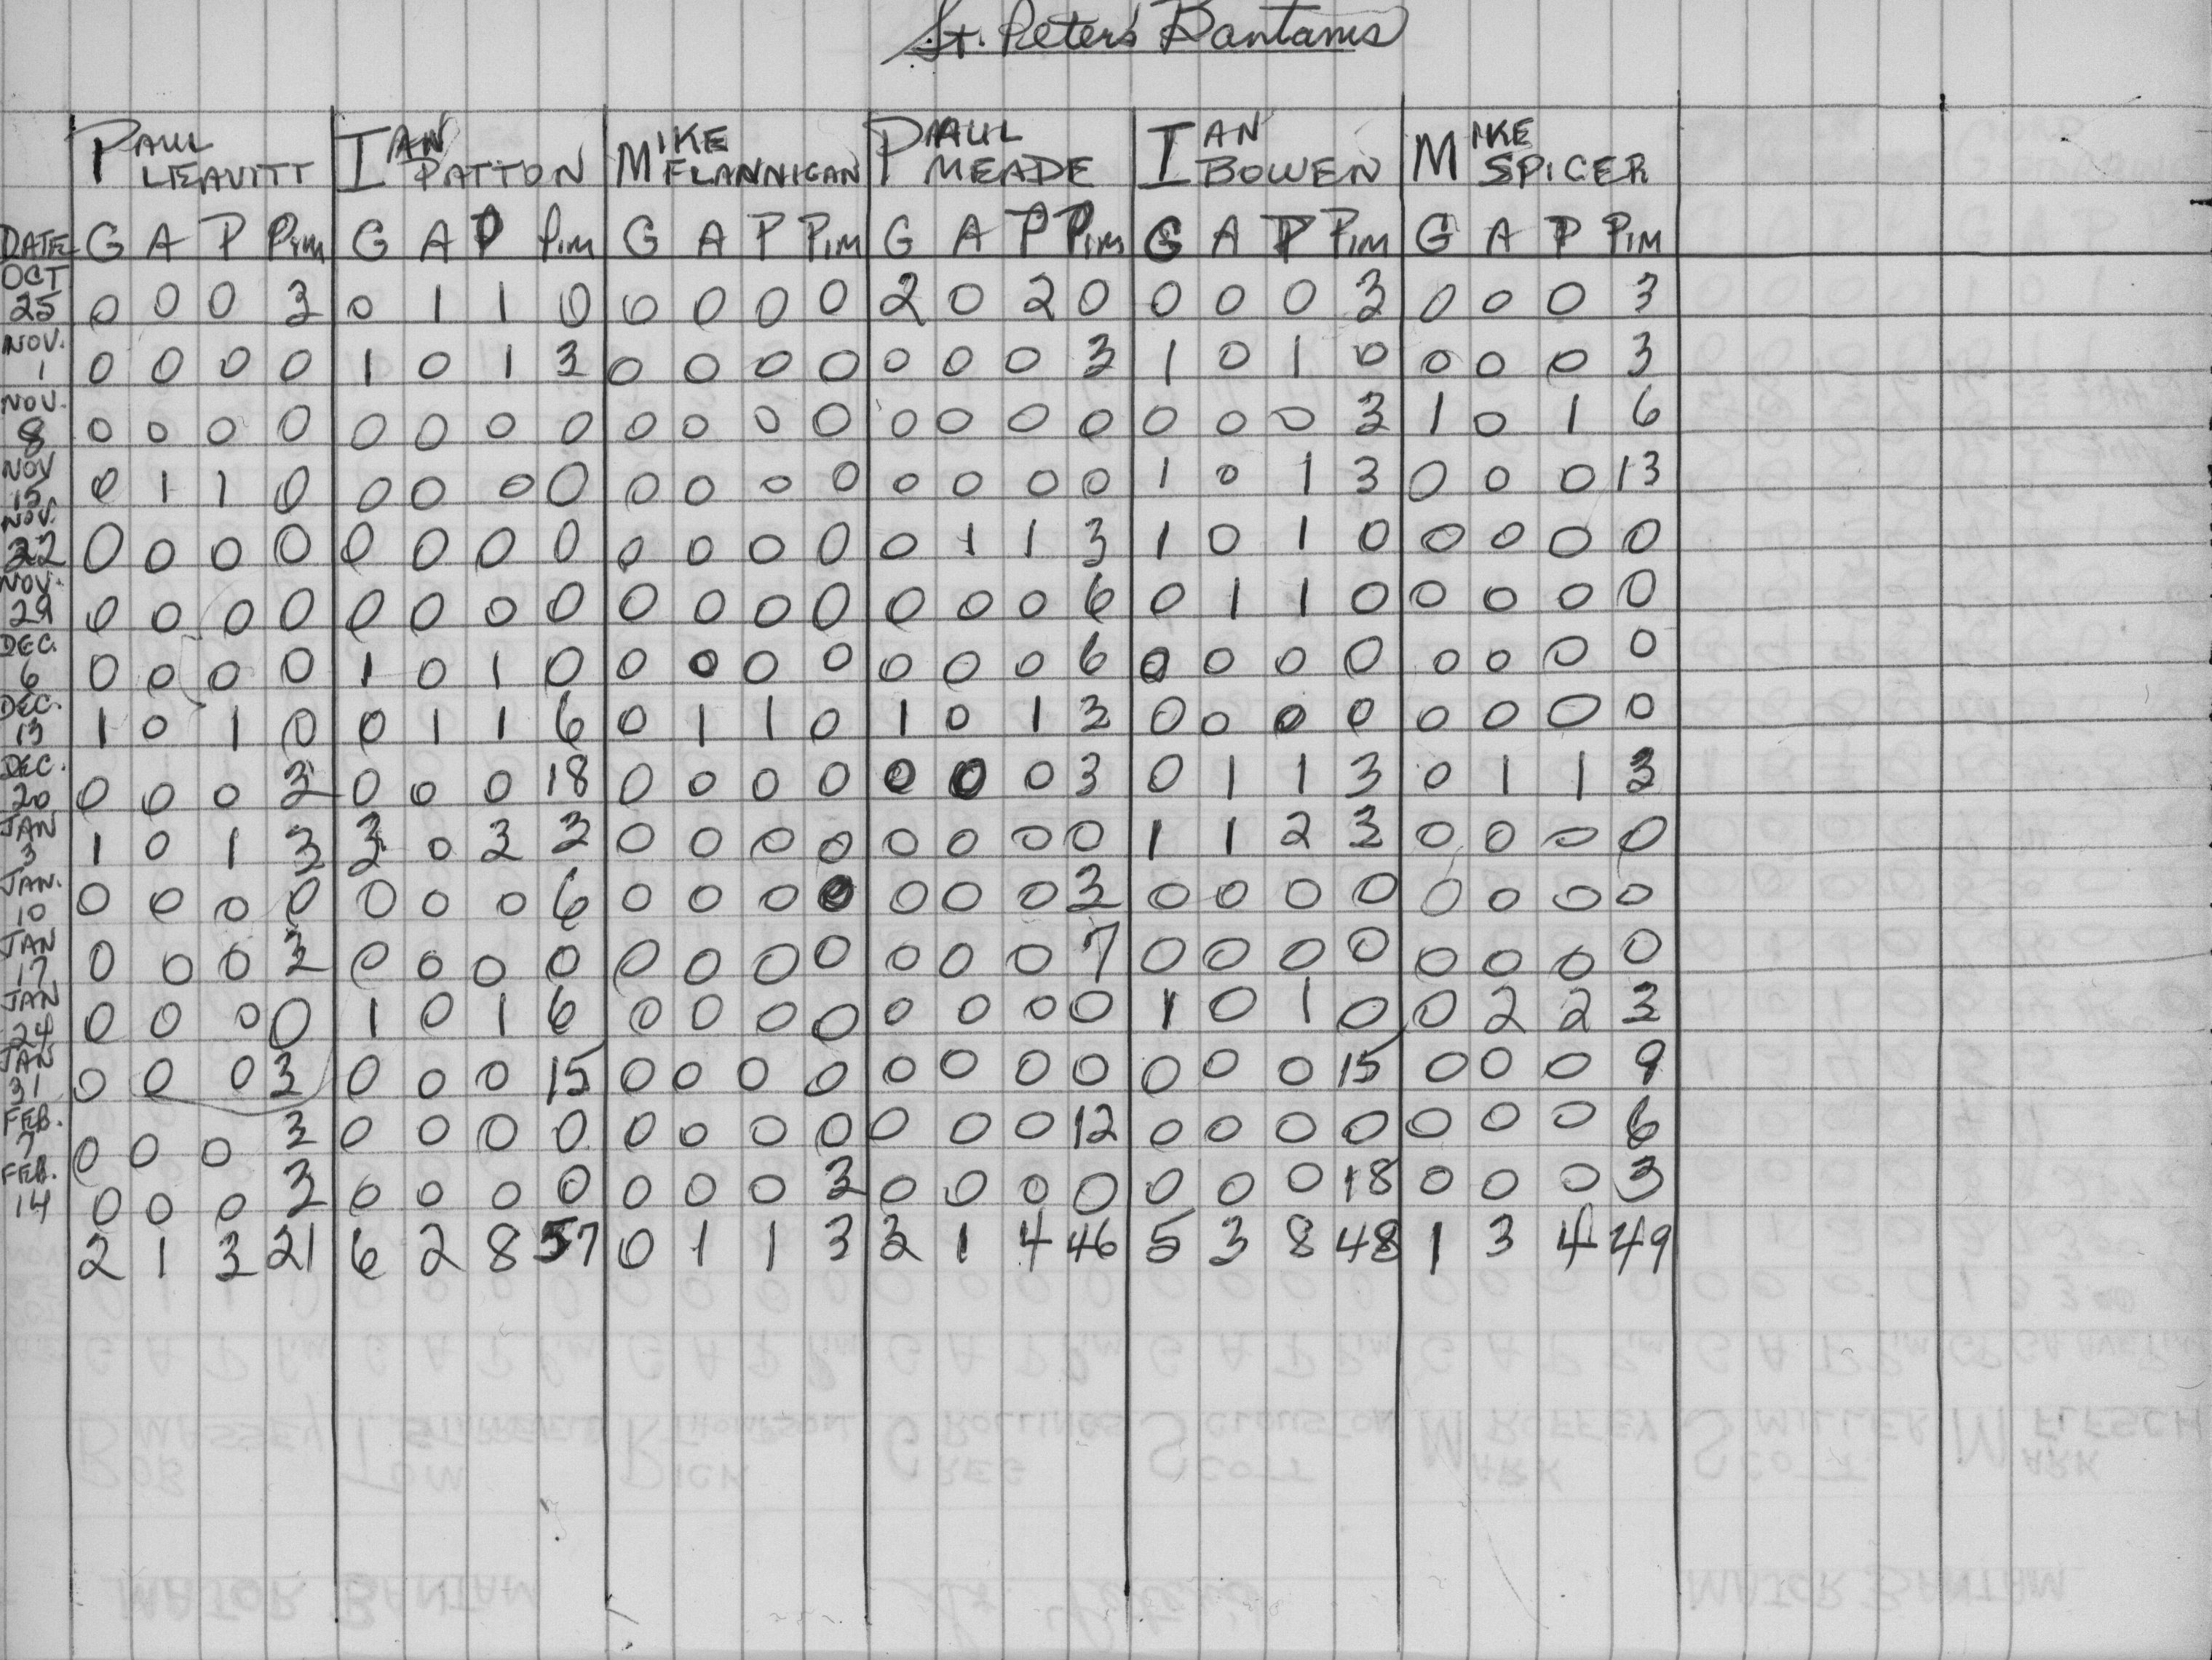 St. Peter's Bantams
PAUL LEAVITT IAN PATTON MIKE FLANNIGAN PAUL MEADE IAN BOWEN MIKE SPICER
DATE G A P PIM G A P PIM G A P PIM G A P PIM G A P PIM G A P PIM
OCT 25 0 0 0 3 0 1 1 0 0 0 0 0 2 0 2 0 0 0 0 3 0 0 0 3
NOV. 1 0 0 0 0 1 0 1 3 0 0 0 0 0 0 0 3 1 0 1 0 0 0 0 3
NOV. 8 0 0 0 0 0 0 0 0 0 0 0 0 0 0 0 0 0 0 0 3 1 0 1 6
NOV 15 0 1 1 0 0 0 0 0 0 0 0 0 0 0 0 0 1 0 1 3 0 0 0 13
NOV. 22 0 0 0 0 0 0 0 0 0 0 0 0 0 1 1 3 1 0 1 0 0 0 0 0
NOV. 29 0 0 0 0 0 0 0 0 0 0 0 0 0 0 0 6 0 1 1 0 0 0 0 0
DEC. 6 0 0 0 0 1 0 1 0 0 0 0 0 0 0 0 6 0 0 0 0 0 0 0 0
DEC. 13 1 0 1 0 0 1 1 6 0 1 1 0 1 0 1 3 0 0 0 0 0 0 0 0
DEC. 20 0 0 0 3 0 0 0 18 0 0 0 0 0 0 0 3 0 1 1 3 0 1 1 3
JAN 3 1 0 1 3 3 0 3 3 0 0 0 0 0 0 0 0 1 1 2 3 0 0 0 0
JAN. 10 0 0 0 0 0 0 0 6 0 0 0 0 0 0 0 3 0 0 0 0 0 0 0 0
JAN 17 0 0 0 3 0 0 0 0 0 0 0 0 0 0 0 7 0 0 0 0 0 0 0 0
JAN 24 0 0 0 0 1 0 1 6 0 0 0 0 0 0 0 0 1 0 1 0 0 2 2 3
JAN 31 0 0 0 3 0 0 0 15 0 0 0 0 0 0 0 0 0 0 0 15 0 0 0 9
FEB. 7 0 0 0 3 0 0 0 0 0 0 0 0 0 0 0 12 0 0 0 0 0 0 0 6
FEB. 14 0 0 0 3 0 0 0 0 0 0 0 3 0 0 0 0 0 0 0 18 0 0 0 3
2 1 3 21 6 2 8 57 0 1 1 3 3 1 4 46 5 3 8 48 1 3 4 49